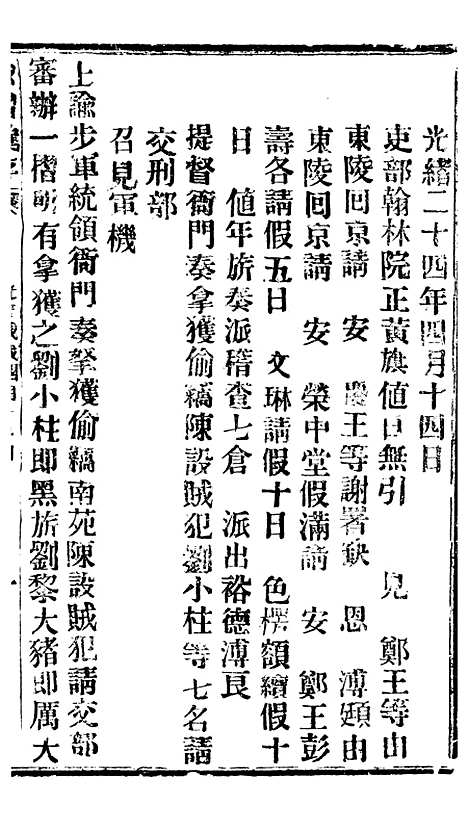 光緒二十四年四月十四日
吏部翰林院正黃旗値日無引　見　鄭王等由
東陵回京請　安　慶王等謝署缺　恩　溥頲由
東陵回京請　安　榮中堂假滿請　安　鄭王彭
壽各請假五日　文琳請假十日　色楞額續假十
日　値年旂奏派稽查七倉　派出裕德溥良
提督衙門奏拿獲偷竊陳設賊犯劉小柱等七名請
交刑部
召見軍機
上諭步軍統領衙門奏拏獲偷竊南苑陳設賊犯請交部
審辦一摺所有拿獲之劉小柱即黑旂劉黎大豬即厲大